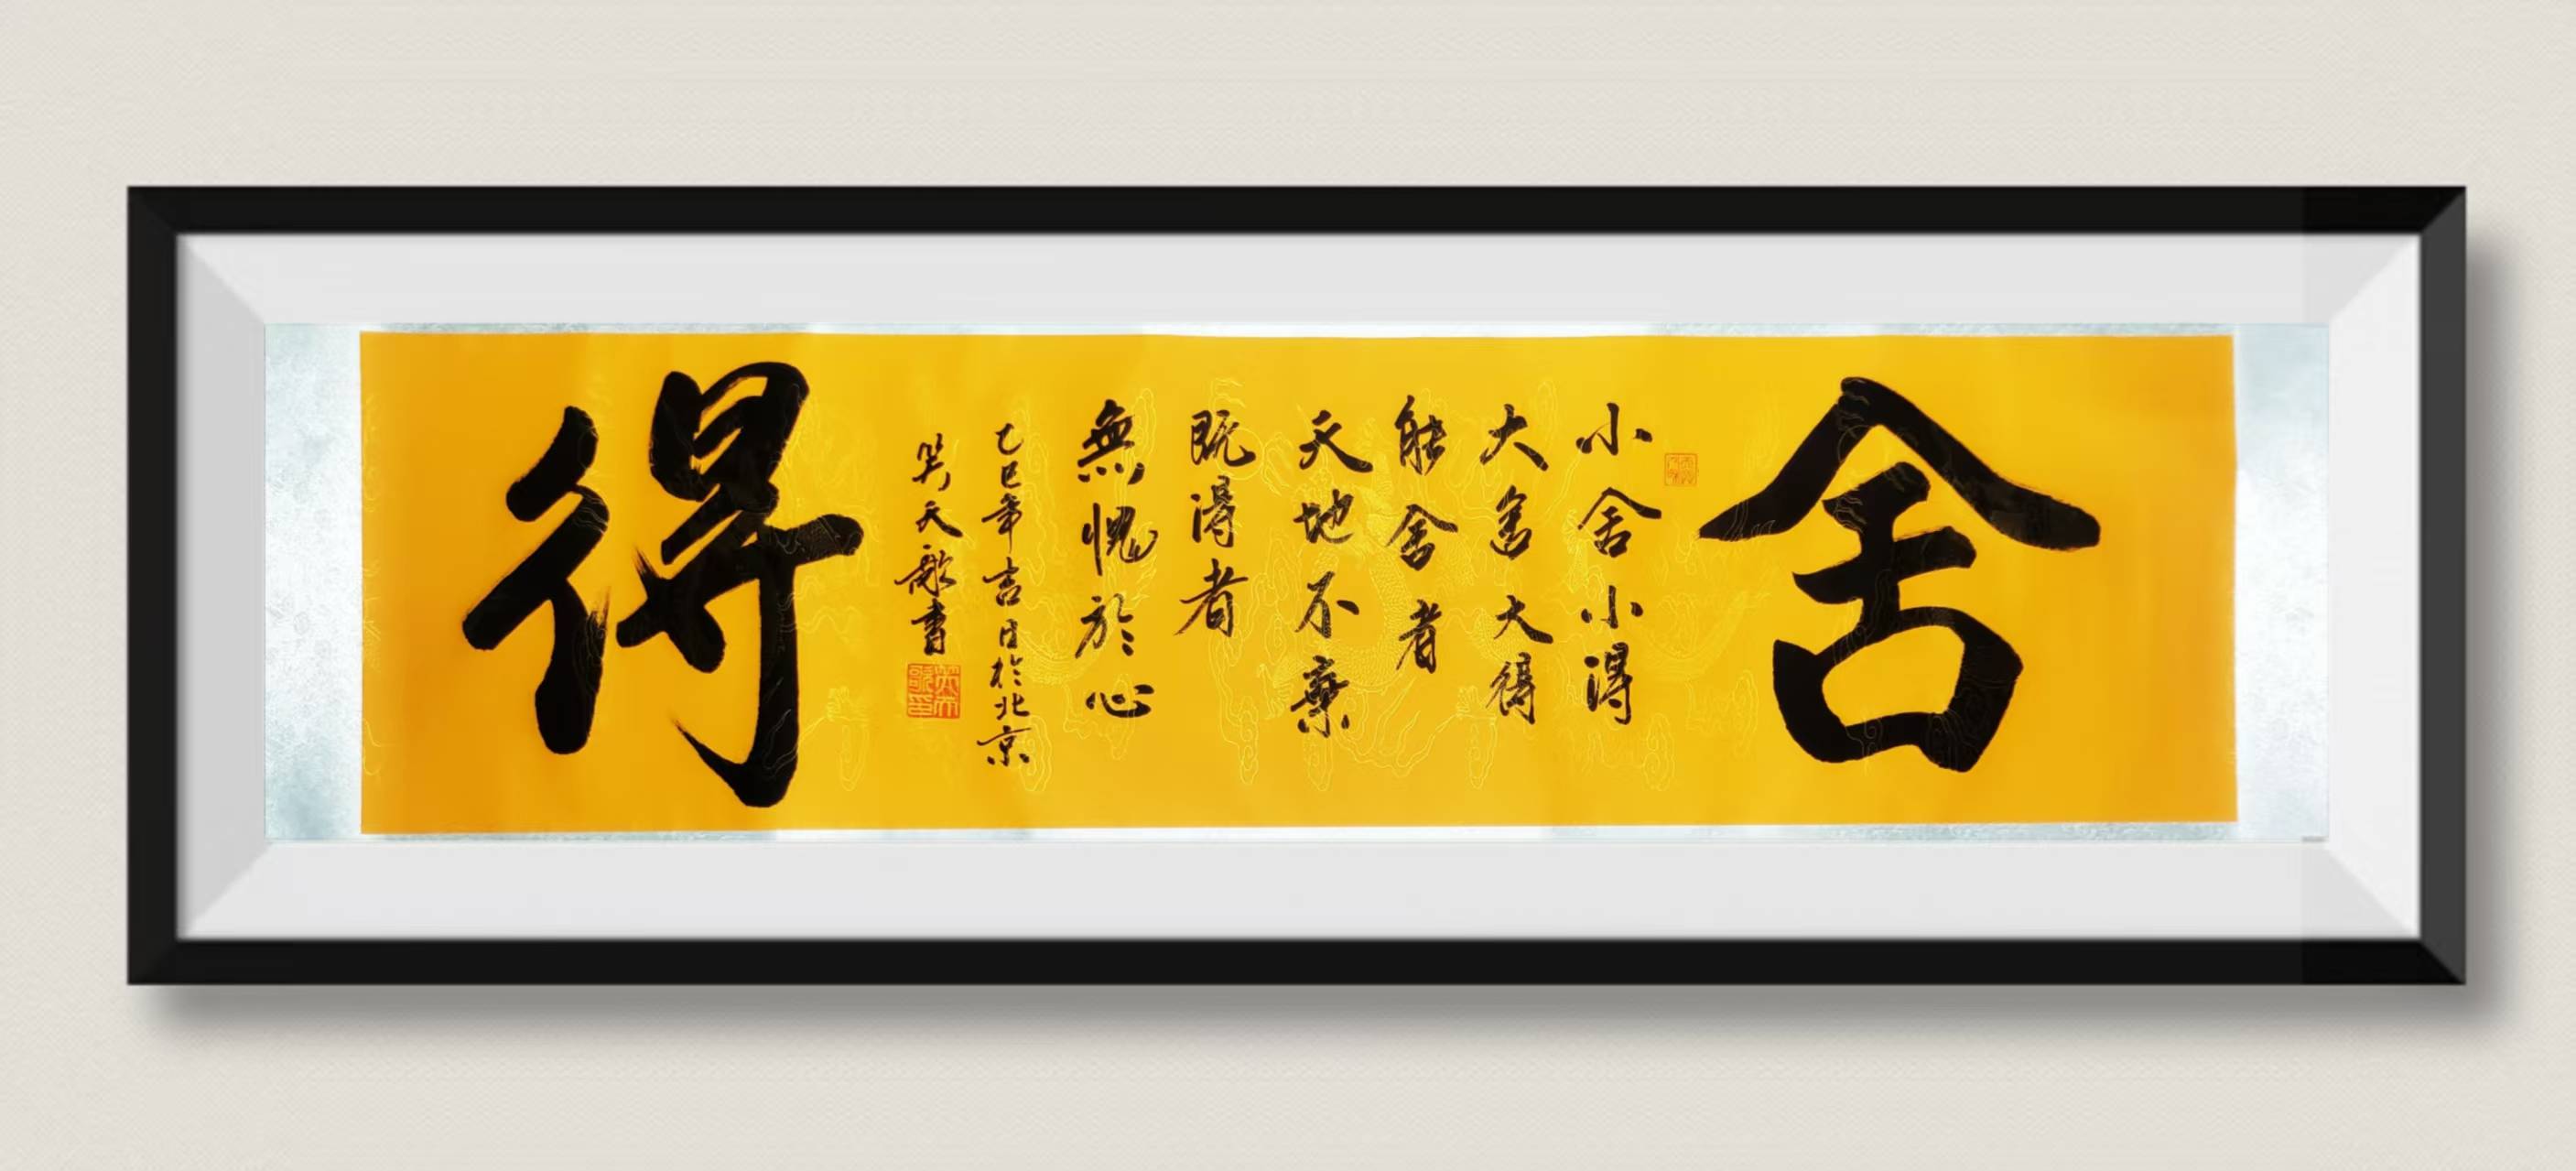 舍
小舍小得
大舍大得
能舍者
天地不棄
既得者
無愧於心
乙巳年吉日於北京
笑天歌書
笑天歌印
得